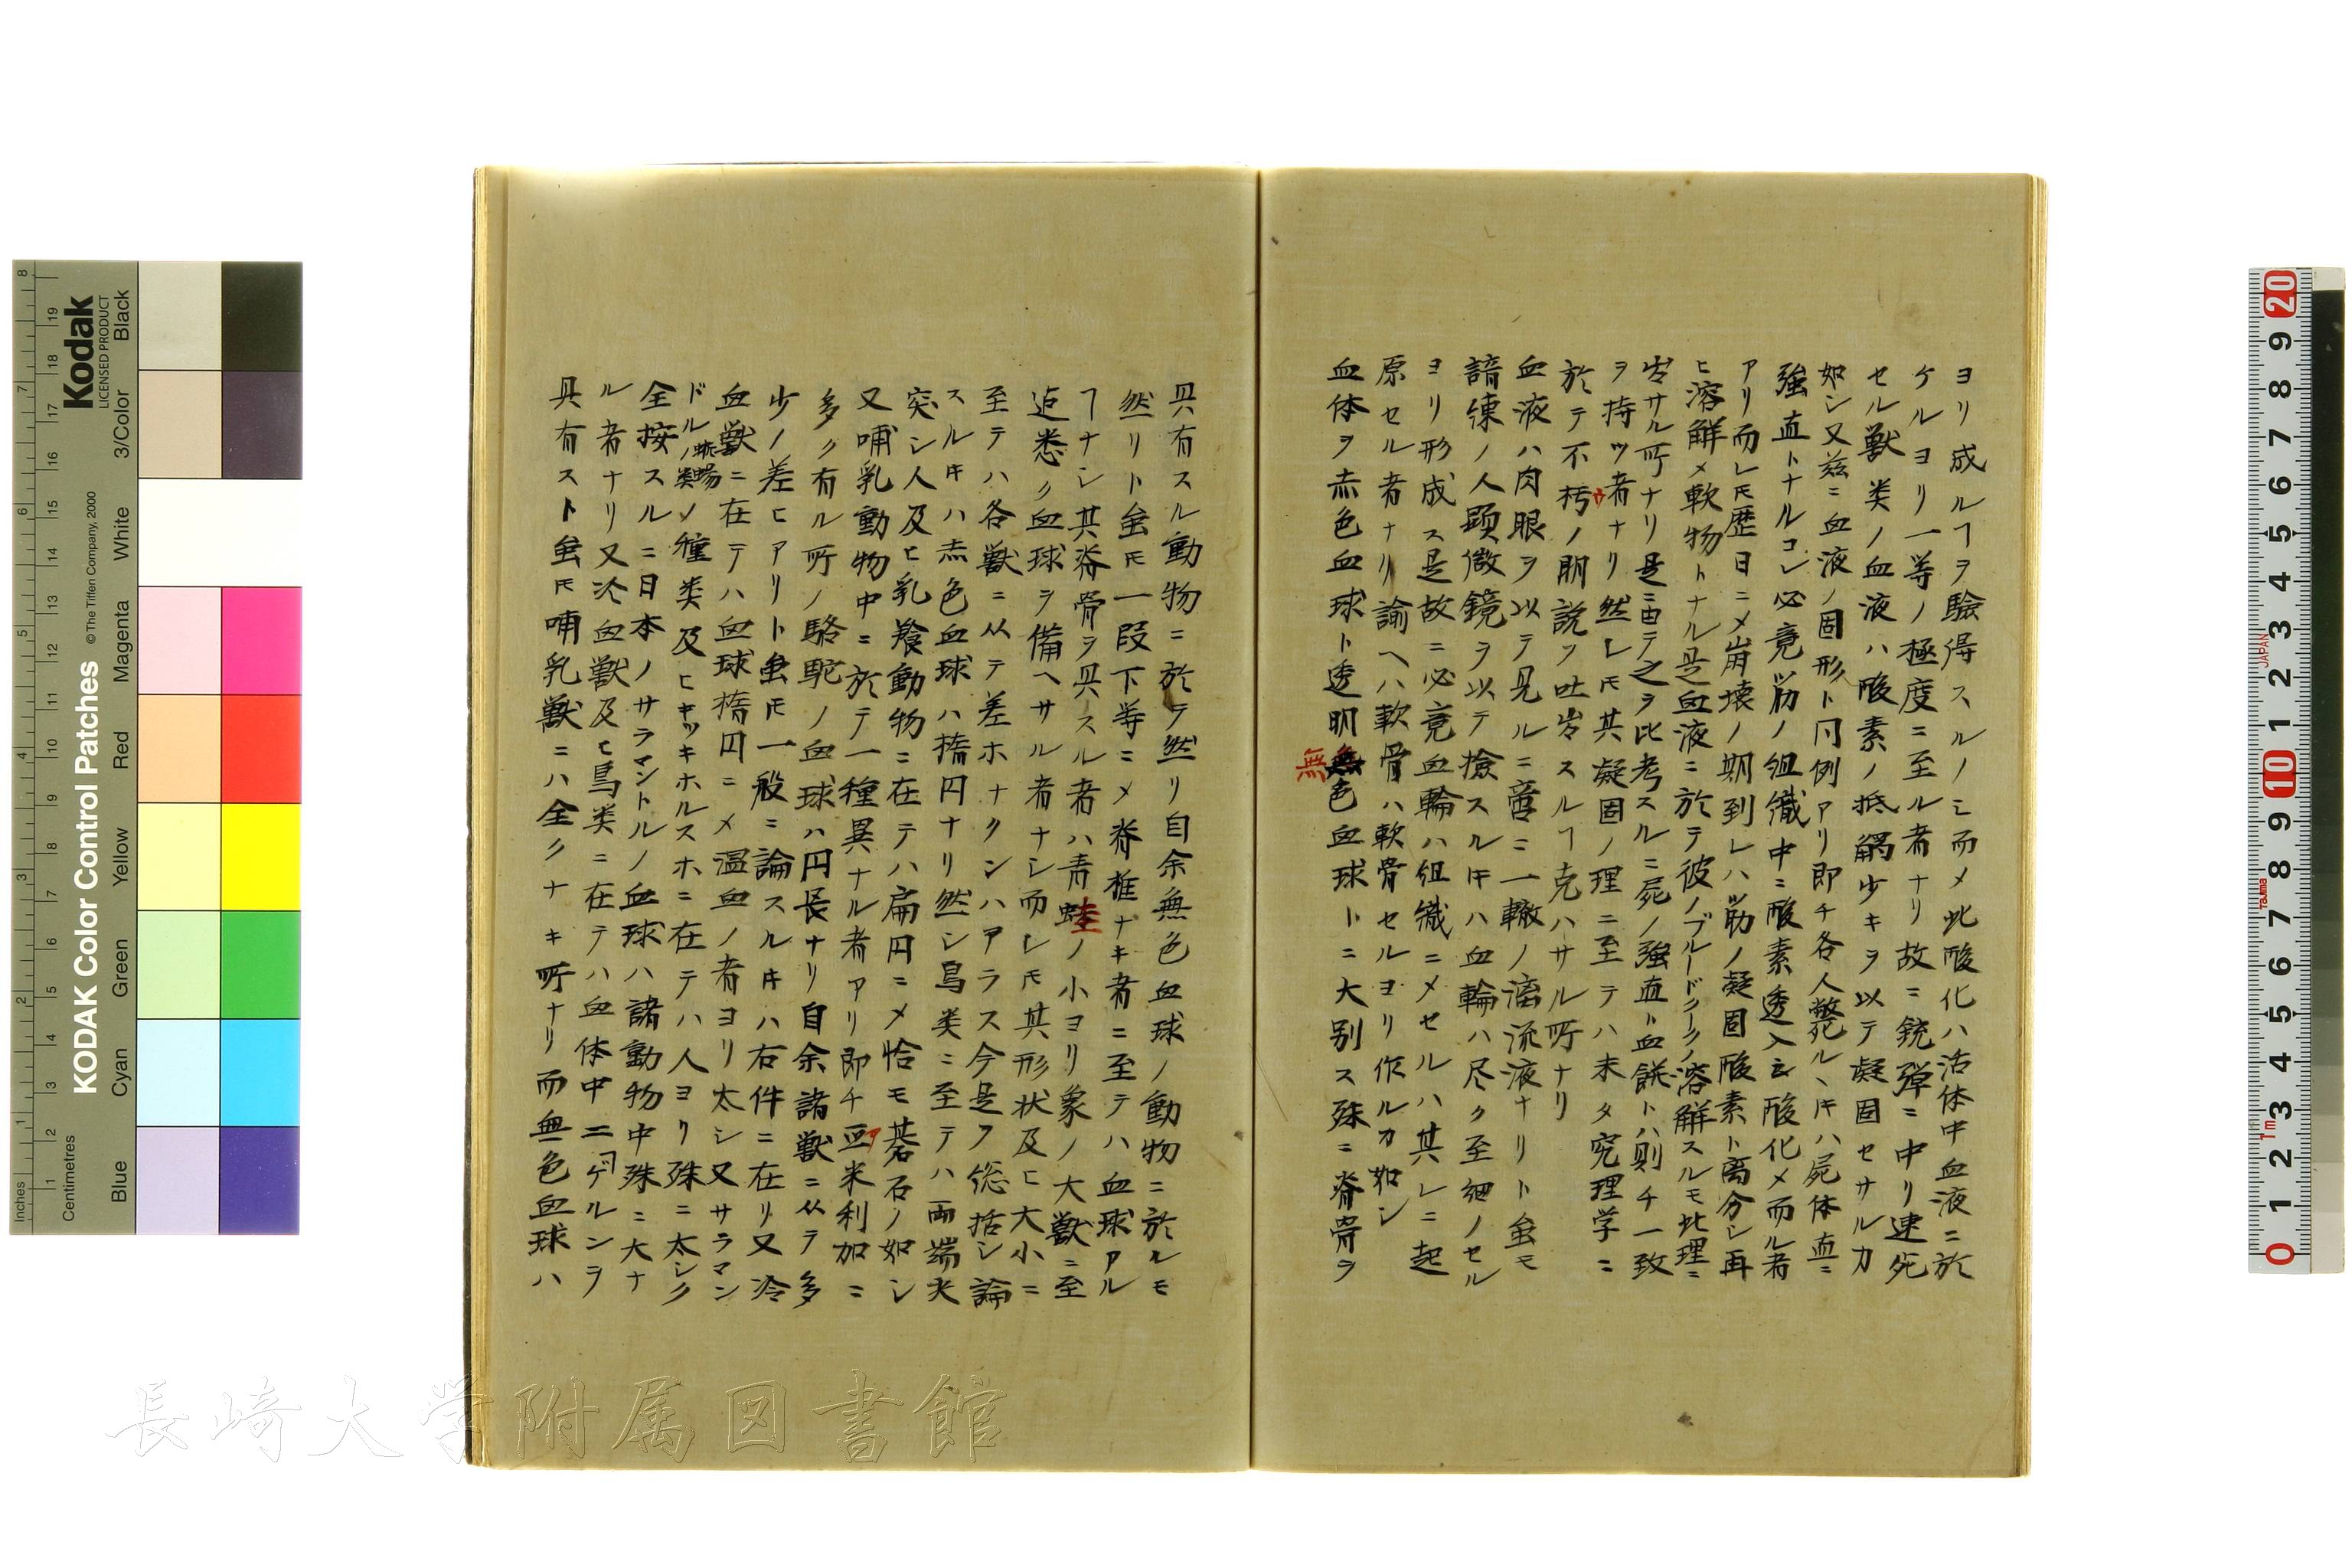 ヨリ成ルヿヲ驗得スルノミ而メ此酸化ハ活体中血液ニ於
ケルヨリ一等ノ極度ニ至ル者ナリ故ニ銃弾ニ中リ速死
セル獣类ノ血液ハ酸素ノ抵觸少キヲ以テ凝固セサルカ
如シ又茲ニ血液ノ固形ト同例アリ即チ各人斃死ルヽ㕁ハ屍体直ニ
強直トナルコレ必竟筋ノ組織中ニ酸素透入シ酸化メ而ル者
アリ而レ𪜈歴日ニメ崩壊ノ期到レハ筋ノ凝固酸素ト离分シ再
ヒ溶解メ軟物トナル是血液ニ於テ彼ノブルードクークノ溶解スルモ此理ニ
出サル所ナリ是ニ由テ之ヲ比考スルニ屍ノ強直ト血餅トハ則チ一致
ヲ持ツ者ナリ然レ𪜈其凝固ノ理ニ至テハ未タ究理学ニ
於テ不朽ノ明説ヲ吐出スルヿ克ハサル所ナリ
血液ハ肉眼ヲ以テ見ルニ啻ニ一轍ノ滴流液ナリト虽モ
諳練ノ人顕微鏡ヲ以テ撿スル㕁ハ血輪ハ尽ク至細ノセル
ヨリ形成ス是故ニ必竟血輪ハ組織ニメセルハ其レニ起
原セル者ナリ諭ヘハ軟骨ハ軟骨セルヨリ作ルカ如シ
血体ヲ赤色血球ト透明無色血球トニ大別ス殊ニ脊骨ヲ
無
具有スル動物ニ於テ然リ自余無色血球ノ動物ニ於ルモ
然リト虽𪜈一段下等ニメ脊椎ナキ者ニ至テハ血球アル
ヿナシ其脊骨ヲ具スル者ハ青蛙ノ小ヨリ象ノ大獣ニ至
迠悉ク血球ヲ備ヘサル者ナシ而レ𪜈其形状及ヒ大小ニ
至テハ各獣ニ从テ差ホナクンハアラス今是ヲ総括シ論
スル㕁ハ赤色血球ハ楕円ナリ然シ鳥类ニ至テハ両端尖
突シ人及ヒ乳養動物ニ在テハ扁円ニメ恰モ碁石ノ如シ
又哺乳動物中ニ於テ一種異ナル者アリ即チ亜米利加ニ
多ク有ル所ノ駱駝ノ血球ハ円長ナリ自余諸獣ニ从テ多
少ノ差ヒアリト虽𪜈一般ニ論スル㕁ハ右件ニ在リ又冷
血獣ニ在テハ血球楕円ニメ温血ノ者ヨリ太シ又サラマン
ドル蜥蜴ノ类ノ種类及ヒキッキホルスホニ在テハ人ヨリ殊ニ太シク
全按スルニ日本ノサラマントルノ血球ハ諸動物中殊ニ大ナ
ル者ナリ又冷血獣及ヒ鳥类ニ在テハ血体中ニゲルンヲ
具有スト虽𪜈哺乳獣ニハ全クナキ所ナリ而無色血球ハ
長崎大学附属図書館
Kodak
LICENSED PRODUCT
KODAK Color Control Patches
© The Tiffen Company, 2000
Inches
Centimetres
Blue
Cyan
Green
Yellow
Red
Magenta
White
3/Color
Black
JAPAN